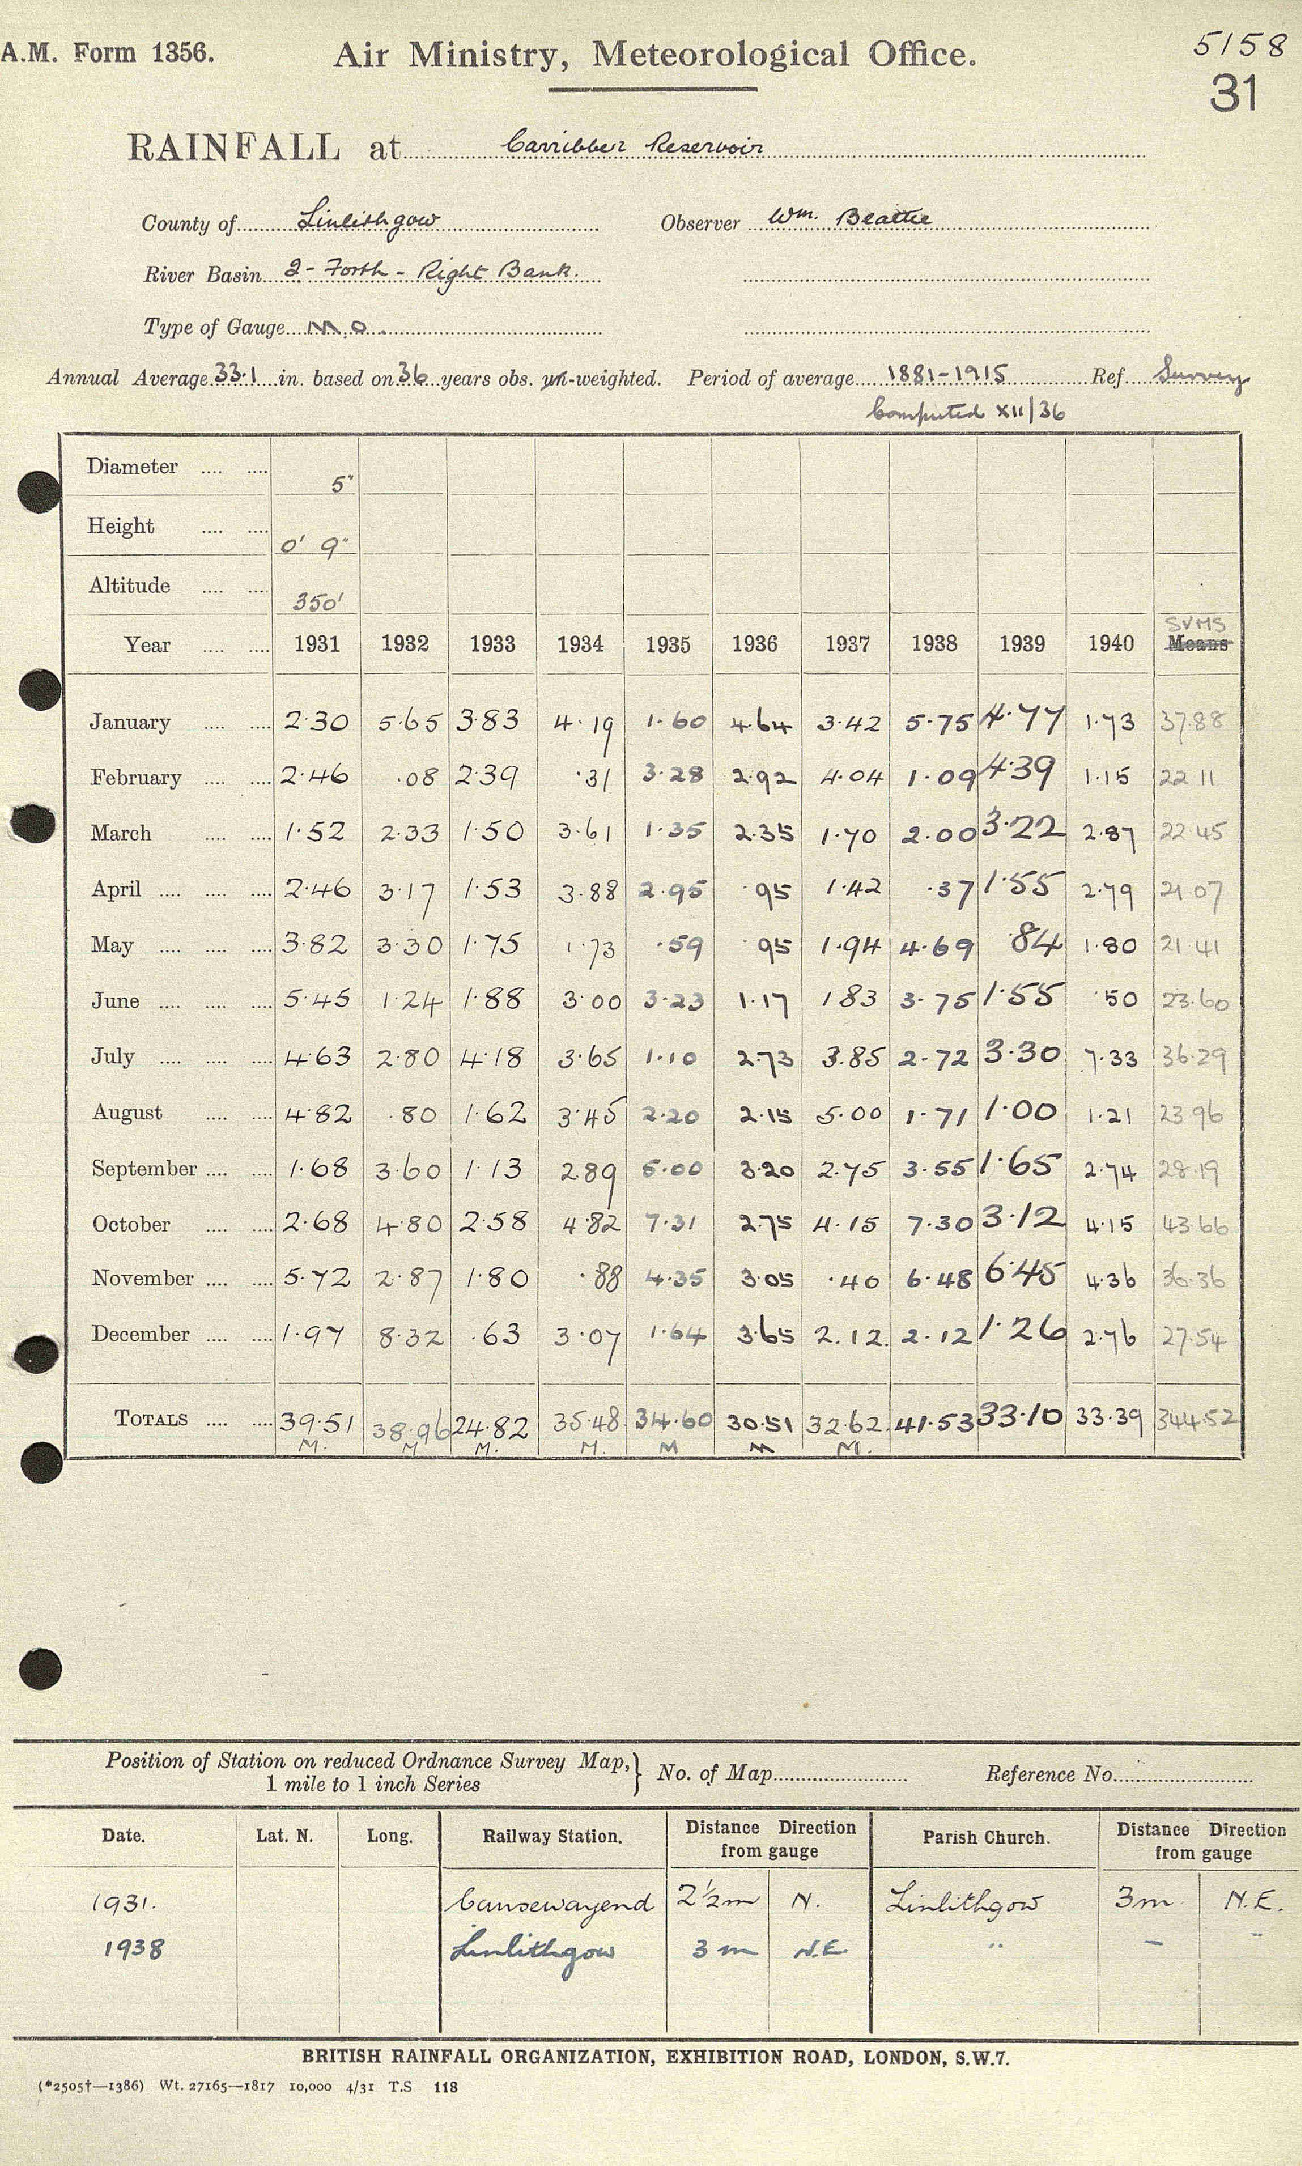 A.M. Form 1356.
Air Ministry, Meteorological Office.
5158
31
RAINFALL at Carribber Reservoir
County of Linlithgow Observer Wm. Beattie
River Basin 2 - Forth - Right Bank.
Type of Gauge M.O.
Annual Average 33.1 in. based on 36 years obs. un-weighted. Period of average 1881-1915 Ref. Survey
Computed XII/36
Diameter .... .... 5"
Height .... .... 0' 9"
Altitude .... .... 350'
SUMS
Year .... .... 1931 1932 1933 1934 1935 1936 1937 1938 1939 1940 Means
January .... .... 2.30 5.65 3.83 4.19 1.60 4.64 3.42 5.75 4.77 1.73 37.88
February .... .... 2.46 .08 2.39 .31 3.28 2.92 4.04 1.09 4.39 1.15 22.11
March .... .... 1.52 2.33 1.50 3.61 1.35 2.35 1.70 2.00 3.22 2.87 22.45
April .... .... .... 2.46 3.17 1.53 3.88 2.95 .95 1.42 .37 1.55 2.79 21.07
May .... .... .... 3.82 3.30 1.75 1.73 .59 .95 1.94 4.69 .84 1.80 21.41
June .... .... .... 5.45 1.24 1.88 3.00 3.23 1.17 1.83 3.75 1.55 .50 23.60
July .... .... .... 4.63 2.80 4.18 3.65 1.10 2.73 3.85 2.72 3.30 7.33 36.29
August .... .... 4.82 .80 1.62 3.45 2.20 2.15 5.00 1.71 1.00 1.21 23.96
September .... .... 1.68 3.60 1.13 2.89 5.00 3.20 2.75 3.55 1.65 2.74 28.19
October .... .... 2.68 4.80 2.58 4.82 7.31 2.75 4.15 7.30 3.12 4.15 43.66
November .... .... 5.72 2.87 1.80 .88 4.35 3.05 .40 6.48 6.45 4.36 36.36
December .... .... 1.97 8.32 .63 3.07 1.64 3.65 2.12 2.12 1.26 2.76 27.54
TOTALS .... .... 39.51 38.96 24.82 35.48 34.60 30.51 32.62 41.53 33.10 33.39 344.52
M. M M. M. M M M.
Position of Station on reduced Ordnance Survey Map,
1 mile to 1 inch Series
} No. of Map Reference No.
Date. Lat. N. Long. Railway Station. Distance from gauge Direction Parish Church. Distance from gauge Direction
1931. Causewayend 2½m N. Linlithgow 3m. N.E.
1938 Linlithgow 3m N.E. " - -
BRITISH RAINFALL ORGANIZATION, EXHIBITION ROAD, LONDON, S.W.7.
(*2505†—1386) Wt. 27165—1817 10,000 4/31 T.S 118